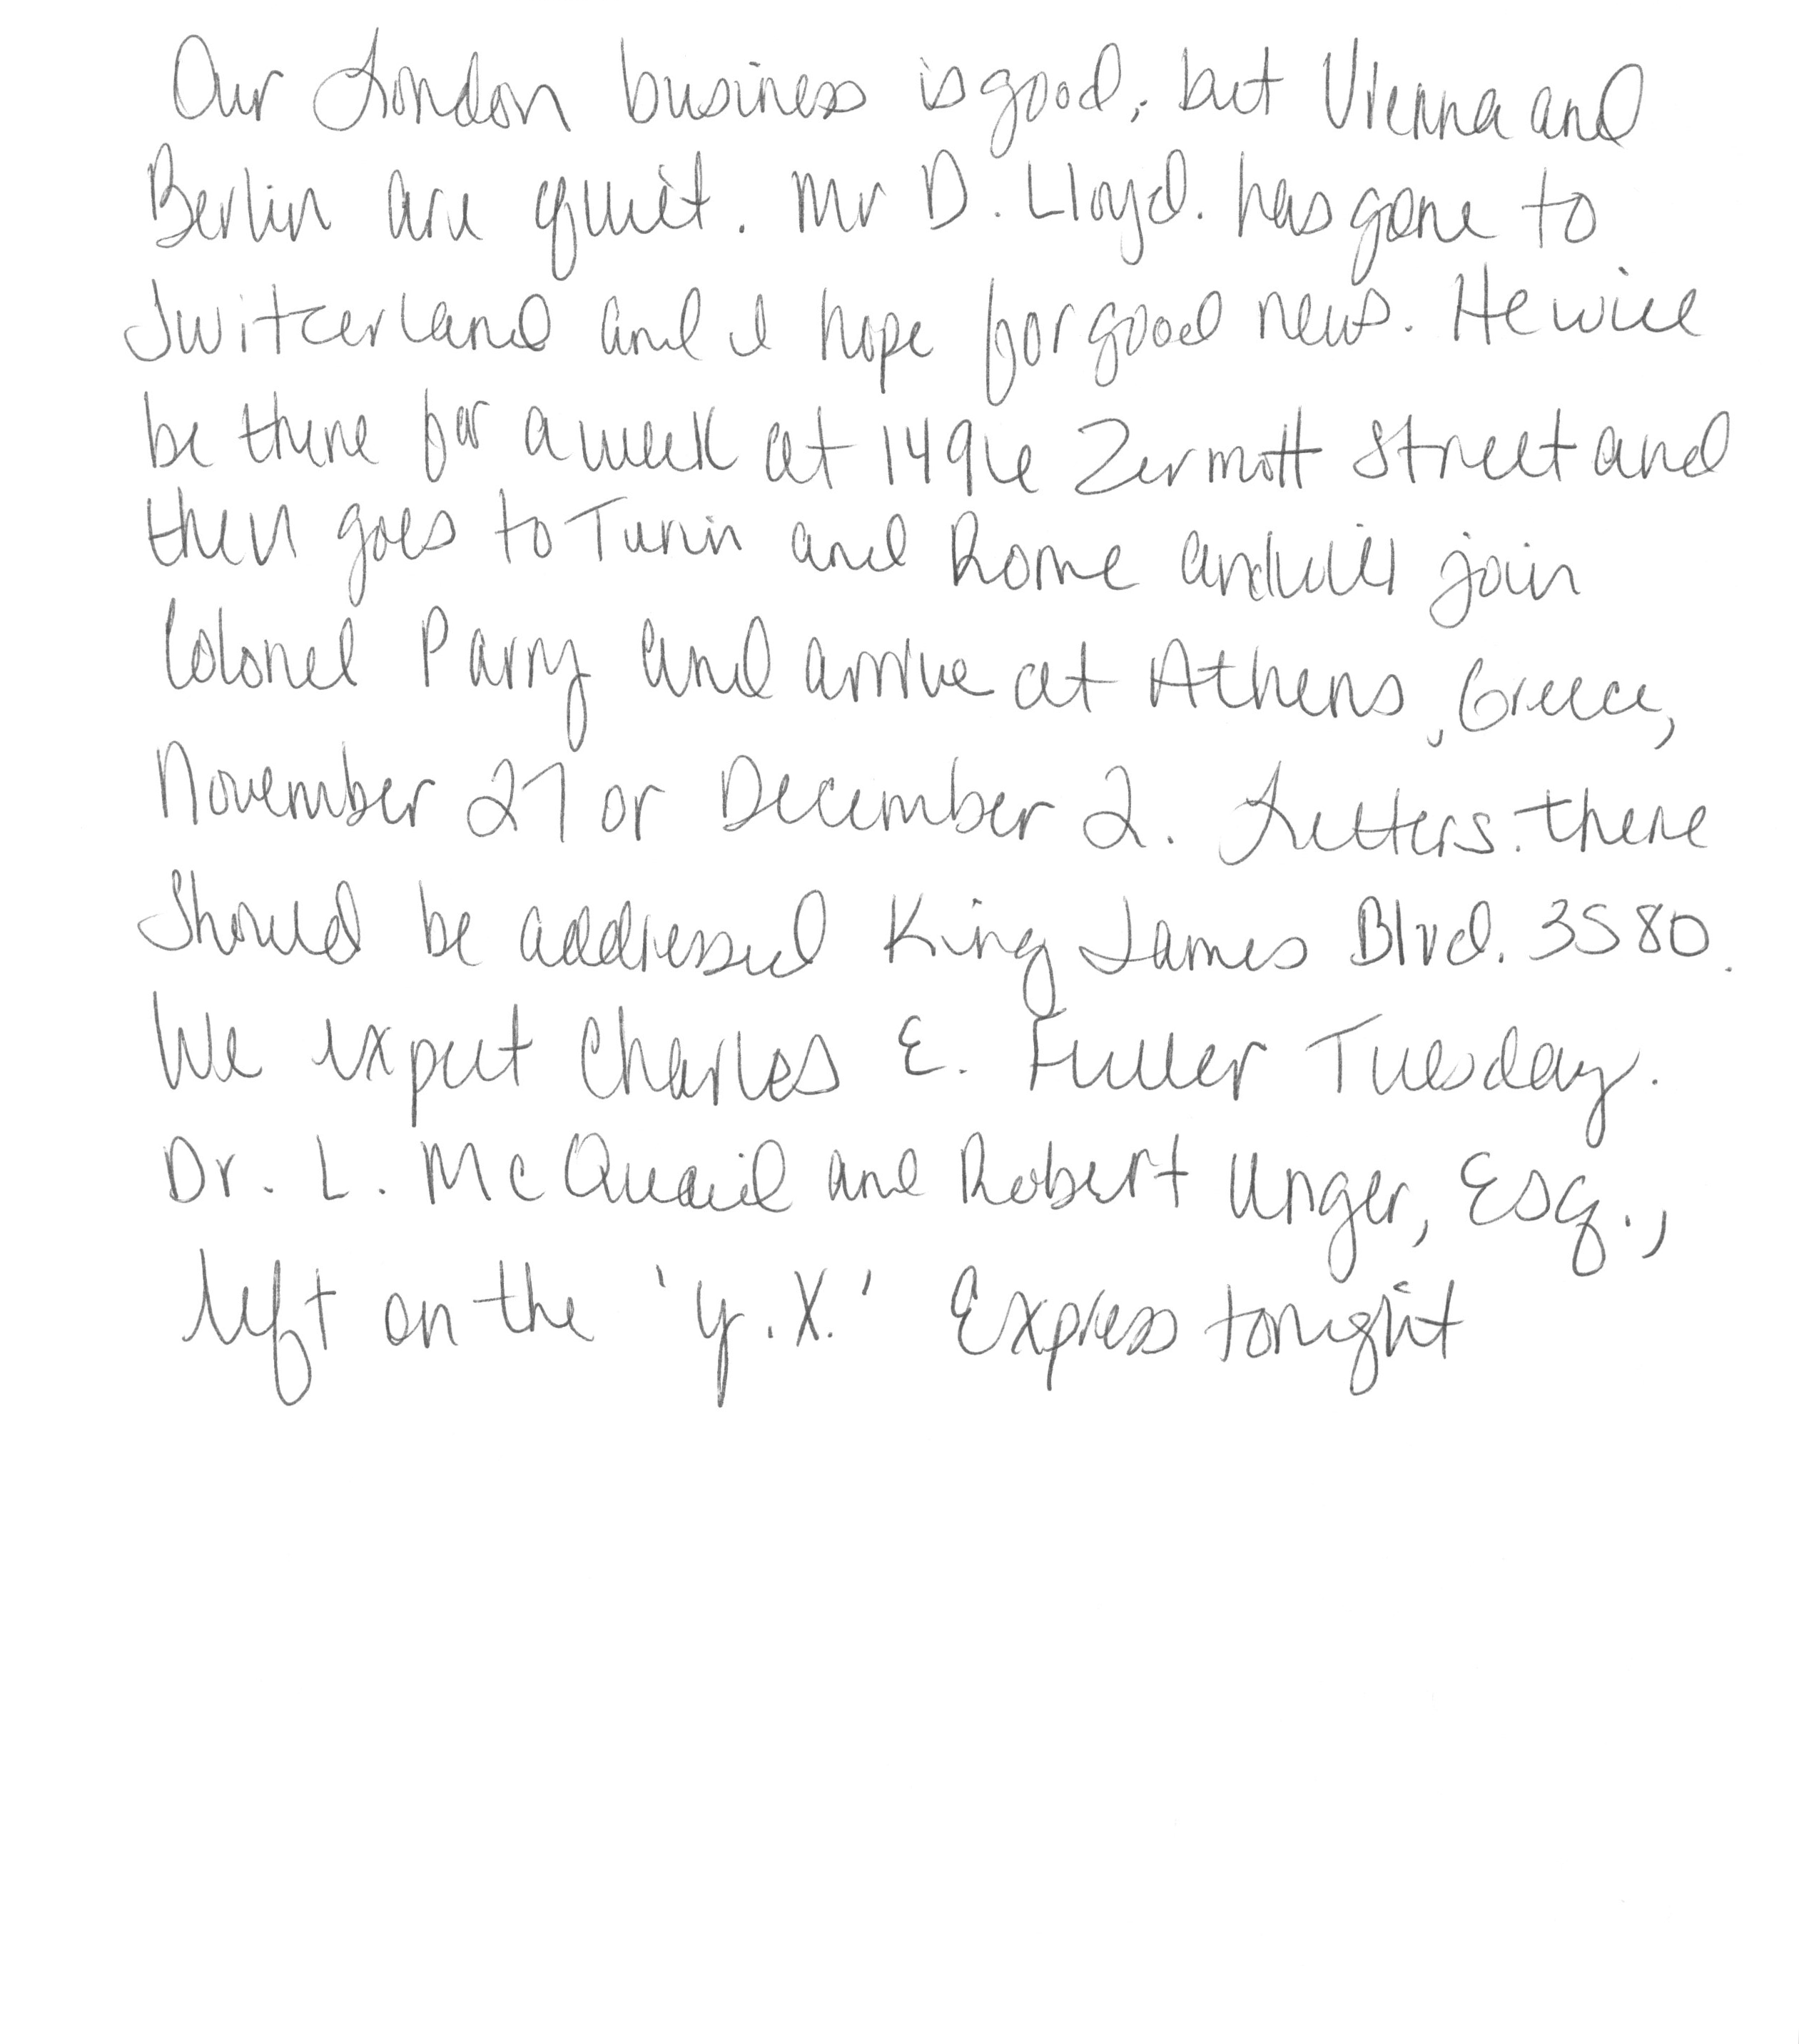 Our London business is good, but Vienna and
Berlin are quiet. Mr D. Lloyd. has gone to
Switzerland and I hope for good news. He will
be there for a week at 1496 Zermott Street and
then goes to Turin and Rome and will join
Colonel Parry and arrive at Athens, Greece,
November 27 or December 2. Letters. there
should be addressed King James Blvd. 3580.
We expect Charles E. Fuller Tuesday.
Dr. L. McQuaid and Robert Unger, Esq.,
left on the 'Y.X.' Express tonight